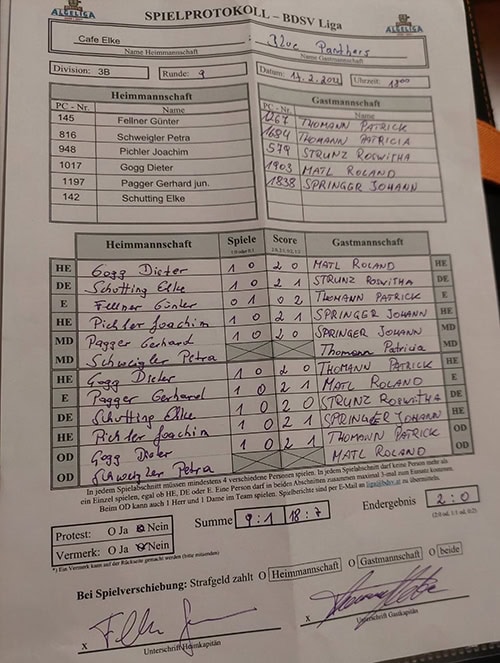 ALGELIGA
SPIELPROTOKOLL – BDSV Liga
ALGELIGA
Cafe Elke
Blue Panthers
Name Heimmannschaft
Name Gastmannschaft
Division: 3B
Runde: 9
Datum:
Uhrzeit:
Heimmannschaft
Gastmannschaft
PC - Nr. Name
PC - Nr. Name
145 Fellner Günter
1267 THOMANN PATRICK
816 Schweigler Petra
1684 THOMANN PATRICIA
948 Pichler Joachim
579 STRUNZ ROSWITHA
1017 Gogg Dieter
1903 MATL ROLAND
1197 Pagger Gerhard jun.
1838 SPRINGER JOHANN
142 Schutting Elke
Heimmannschaft Spiele Score Gastmannschaft
HE Gogg Dieter 1 0 2 0 MATL ROLAND HE
DE Schutting Elke 1 0 2 1 STRUNZ ROSWITHA DE
E Fellner Günter 0 1 0 2 THOMANN PATRICK E
HE Pichler Joachim 1 0 2 1 SPRINGER JOHANN HE
MD Pagger Gerhard 1 0 2 0 SPRINGER JOHANN MD
MD Schweigler Petra Thomann Patricia MD
HE Gogg Dieter 1 0 2 0 THOMANN PATRICK HE
E Pagger Gerhard 1 0 2 1 MATL ROLAND E
DE Schutting Elke 1 0 2 0 STRUNZ ROSWITHA DE
HE Pichler Joachim 1 0 2 1 SPRINGER JOHANN HE
OD Gogg Dieter 1 0 2 1 THOMANN PATRICK OD
OD Schweigler Petra MATL ROLAND OD
In jedem Spielabschnitt müssen mindestens 4 verschiedene Personen spielen. In jedem Spielabschnitt darf keine Person mehr als
ein Einzel spielen, egal ob HE, DE oder E. Eine Person darf in beiden Abschnitten zusammen maximal 3-mal zum Einsatz kommen.
Beim OD kann auch 1 Herr und 1 Dame im Team spielen. Spielberichte sind per E-Mail an liga@bdsv.at zu übermitteln.
Protest: O Ja Nein
Summe 9:1 18:7
Endergebnis 2:0
Vermerk: O Ja Nein
*) Ein Vermerk kann auf der Rückseite gemacht werden (bitte mitsenden)
Bei Spielverschiebung: Strafgeld zahlt O Heimmannschaft O Gastmannschaft O beide
x
x
Unterschrift Heimkapitän
Unterschrift Gastkapitän